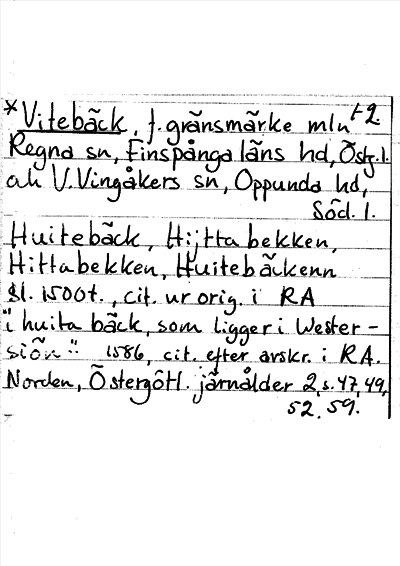 *Vitebäck, f. gränsmärke mln t2
Regna sn, Finspånga läns hd, Östg. l.
ah V. Vingåkers sn, Oppunda hd,
Söd. l.
Huitebäck, Hijttabekken,
Hittabekken, Huitebäckenn
Sl. 1500t., cit. ur orig. i RA
"i huita bäck, som ligger i Wester-
siön": 1586, cit. efter avskr. i RA.
Norden, Östergötl. järnålder 2, s. 47, 49,
52, 59.